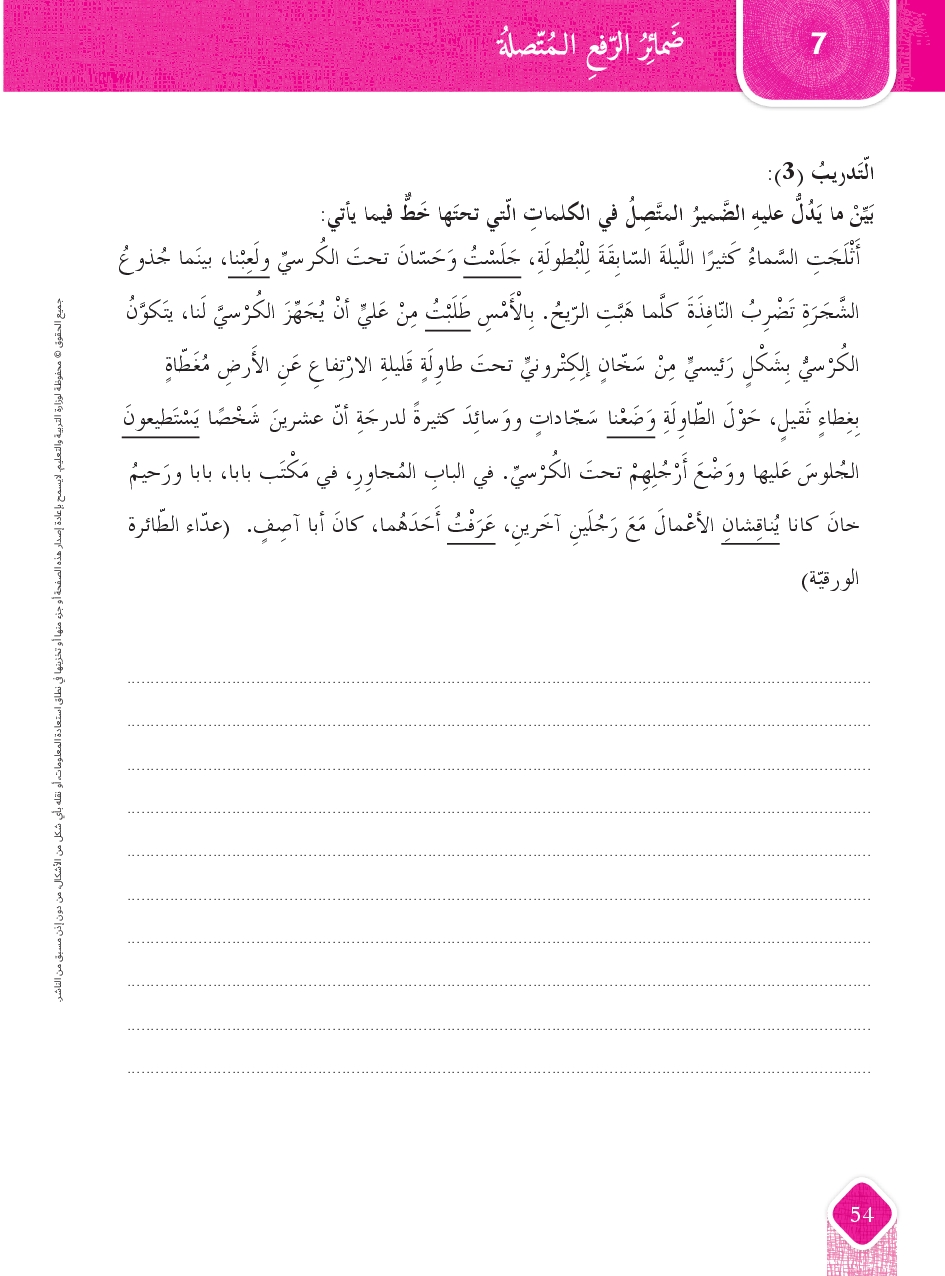 7
ضَمائِرُ الرّفعِ المُتّصلةُ
التَّدريبُ (3):
بَيِّنْ ما يَدُلُّ عليهِ الضَّميرُ المتَّصِلُ في الكلماتِ الّتي تحتَها خَطٌّ فيما يأتي:
أَثْلَجَتِ السَّماءُ كَثيرًا اللَّيلةَ السّابِقَةَ لِلْبُطولَةِ، جَلَسْتُ وَحَسّانَ تحتَ الكُرسيِّ ولَعِبْنا، بينَما جُذوعُ
الشَّجَرَةِ تَضْرِبُ النّافِذَةَ كلَّما هَبَّتِ الرّيحُ. بِالْأَمْسِ طَلَبْتُ مِنْ عَليٍّ أنْ يُجَهِّزَ الكُرْسيَّ لَنا، يتَكوَّنُ
الكُرْسيُّ بِشَكْلٍ رَئيسيٍّ مِنْ سَخّانٍ إلِكِتْرونيٍّ تحتَ طاوِلَةٍ قَليلةِ الارْتِفاعِ عَنِ الأَرضِ مُغَطّاةٍ
بِغِطاءٍ ثَقيلٍ، حَوْلَ الطّاوِلَةِ وَضَعْنا سَجّاداتٍ ووَسائِدَ كثيرةً لدرجَةِ أنّ عشرينَ شَخْصًا يَسْتَطيعونَ
الجُلوسَ عَليها ووَضْعَ أَرْجُلِهِمْ تحتَ الكُرْسيِّ. في البابِ المُجاوِرِ، في مَكْتَب بابا، بابا ورَحيمُ
خانَ كانا يُناقِشانِ الأعْمالَ مَعَ رَجُلَينِ آخَرينِ، عَرَفْتُ أَحَدَهُما، كانَ أبا آصِفٍ. (عدّاء الطّائرة
الورقيّة)
جميع الحقوق © محفوظة لوزارة التربية والتعليم. لايسمح بإعادة إصدار هذه الصفحة أو جزء منها أو تخزينها في نطاق استعادة المعلومات، أو نقله بأي شكل من الأشكال، من دون إذن مسبق من الناشر.
54